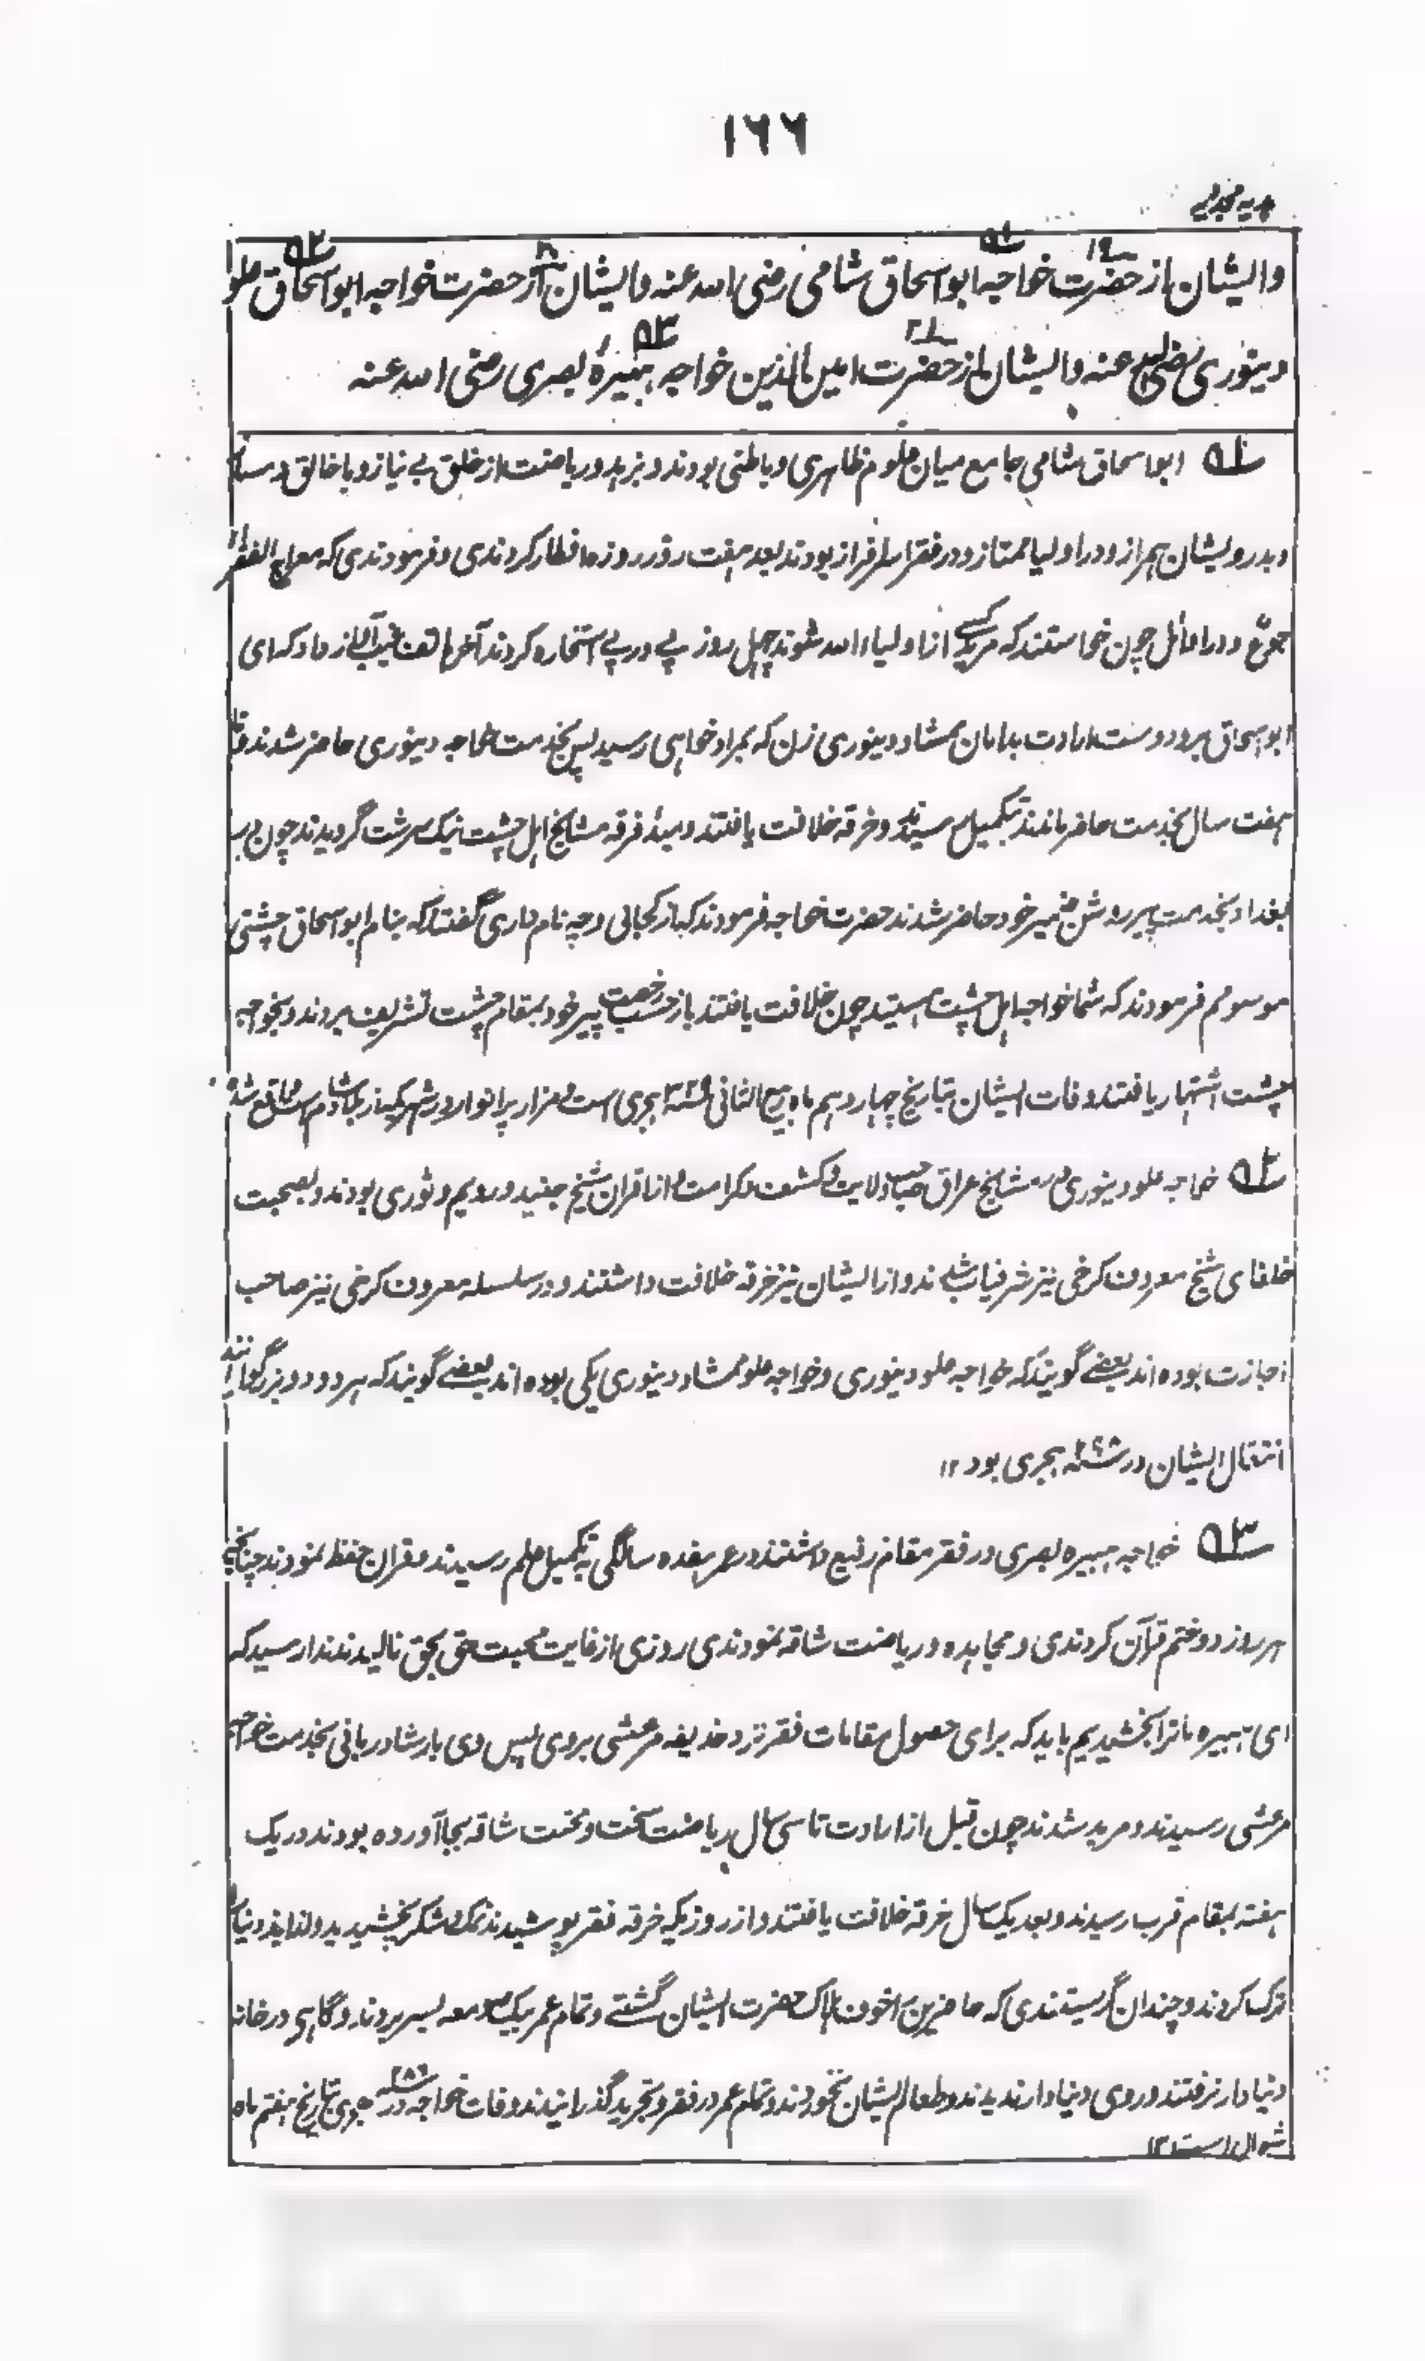 ۱۶۶
ہدیہ مجددیہ
وایشان از حضرت خواجه ابو اسحاق شامی رضی الله عنه وایشان از حضرت خواجه ابو اسحاق علو
دینوری رضی الله عنه وایشان از حضرت امین الدین خواجه هبیرهٔ بصری رضی الله عنه
۵۱ ابو اسحاق شامی جامع میان علوم ظاهری و باطنی بودند و بزهد و ریاضت از خلق بے نیاز و با خالق
و بدرویشان همراز و در اولیا ممتاز و در فقرا سرافراز بودند بعد هفت روز روزه افطار کردندی و فرمودندی که معراج الفقراء
جوع و در اوائل چون خواستند که مرید کسے از اولیاء الله شوند چهل روز پے در پے استخاره کردند آخر هاتف غیب آواز داد که ای
ابو اسحاق برو و دست ارادت بدامان ممشاد دینوری زن که بمراد خواهی رسید پس بخدمت خواجه دینوری حاضر شدند و تا
هفت سال بخدمت حاضر ماندند بتکمیل رسیدند و خرقه خلافت یافتند و فرقه مشایخ اهل چشت نیک سرشت گردیدند چون
بغداد بخدمت پیر روشن ضمیر خود حاضر شدند حضرت خواجه فرمودند که از کجائی و چه نام داری گفتند که بنام ابو اسحاق چشتی
موسومم فرمودند که شما خواجه اهل چشت هستید چون خلافت یافتند باز حسب رخصت پیر خود بمقام چشت تشریف بردند و بخواجه
چشت اشتهار یافتند وفات ایشان بتاریخ چهاردهم ماه ربیع الثانی ۳۲۹ هجری است و مزار پر انوار در شهر
۵۲ خواجه علو دینوری در مشایخ عراق صاحب ولایت و کشف و کرامت و از اقران شیخ جنید و رویم و نوری بودند و بصحبت
خلفای شیخ معروف کرخی نیز شرفیاب شدند و از ایشان نیز خرقه خلافت داشتند و در سلسله معروف کرخی نیز صاحب
اجازت بوده اند بعضے گویند که خواجه علو دینوری و خواجه علو ممشاد دینوری یکی بوده اند بعضے گویند که هر دو دو بزرگوارانند
انتقال ایشان در ۲۹۸ هجری بود ۱۲
۵۳ خواجه هبیره بصری در فقر مقام رفیع داشتند در عمر هفده سالگی به تکمیل علم رسیدند و قرآن حفظ نمودند چنانچه
هر روز دو ختم قرآن کردندی و مجاهده و ریاضت شاقه نمودندی روزی از غایت محبت حق بحق نالیدند ندا رسید که
ای هبیره ما ترا بخشیدیم باید که برای حصول مقامات فقر نزد حذیفه مرعشی بروی پس وی بارشاد ربانی بخدمت خواجه
مرعشی رسیدند و مرید شدند چون قبل از ارادت تا سی سال ریاضت سخت و محنت شاقه بجا آورده بودند در یک
هفته بمقام قرب رسیدند و بعد یک سال خرقه خلافت یافتند و از روزیکه خرقه فقر پوشیدند نمک و شکر و لذایذ دنیا
ترک کردند و چندان گریستندی که حاضرین را خوف هلاک حضرت ایشان گشتے و تمام عمر بیک صومعه بسر بردند و گاهی در خانه
دنیادار نرفتند و روی دنیادار ندیدند و طعام ایشان نخوردند و تمام عمر در فقر و تجرید گذرانیدند وفات خواجه در ۲۸۷ هجری بتاریخ هفتم ماه
شوال است ۱۲